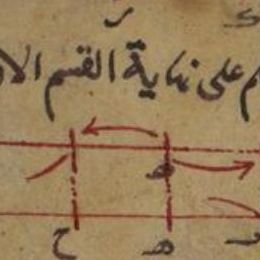 ر
م على نهاية القسم الا
ه
ح ه